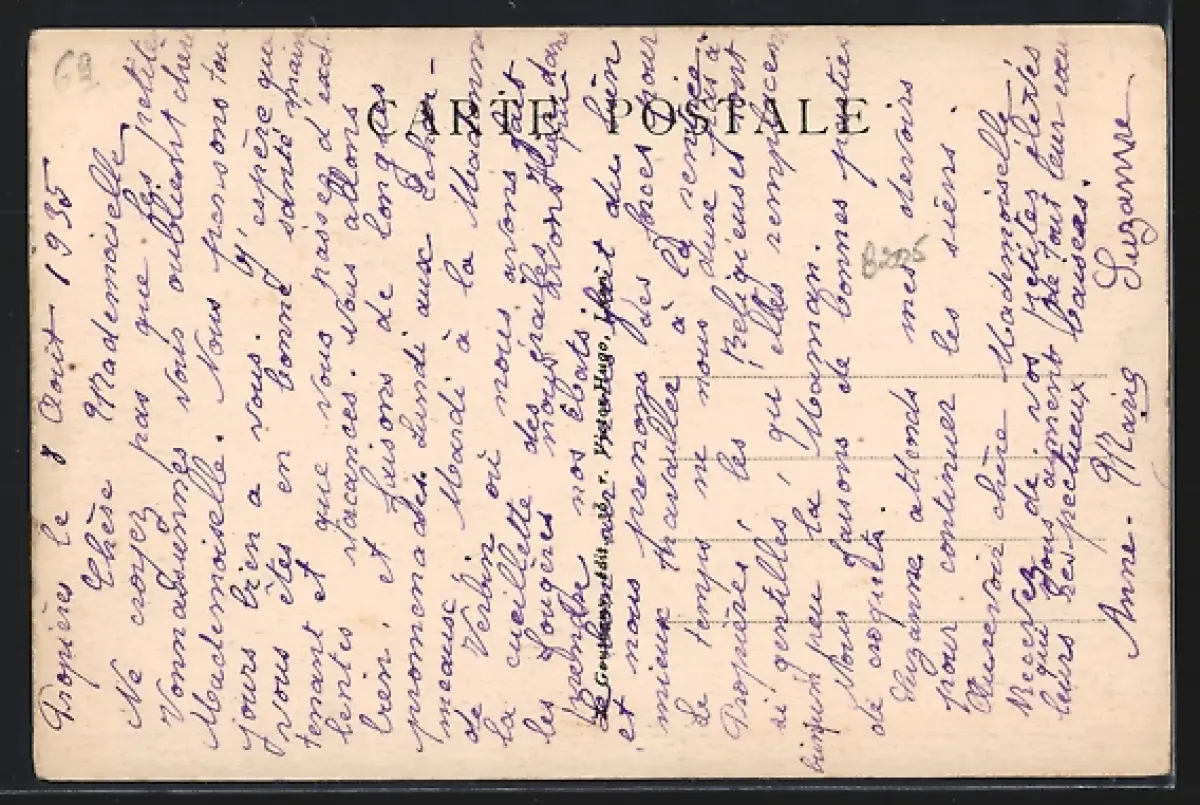 Propières le 8 Août 1935
Chère Mademoiselle
Ne croyez pas que les petites
Vonnassiennes vous oublient chère
Mademoiselle. Nous pensons tou
jours bien a vous. J'espère que
vous êtes en bonne santé main
tenant et que vous passez d'exce
lentes vacances. Nous allons
bien et faisons de longues
promenades Lundi aux Eche-
meaux Mardi à la Madone
de Verbin où nous avons fait
la cueillette des fraises
les fougères
nos ébats
et nous prenons des forces pour
mieux travailler à la rentrée
Le temps ne nous dure pas à
Propières, les Religieuses sont
si gentilles, qu'elles remplacent
un peu la Maman.
Nous faisons de bonnes parties
de croquet.
Suzanne attends mes devoirs
pour continuer les siens.
Aurevoir chère Mademoiselle,
Recevez de vos petites élèves
qui vous aiment de tout leur cœur
leurs respectueux baisers.
Anne-Marie Suzanne
CARTE POSTALE
B2005